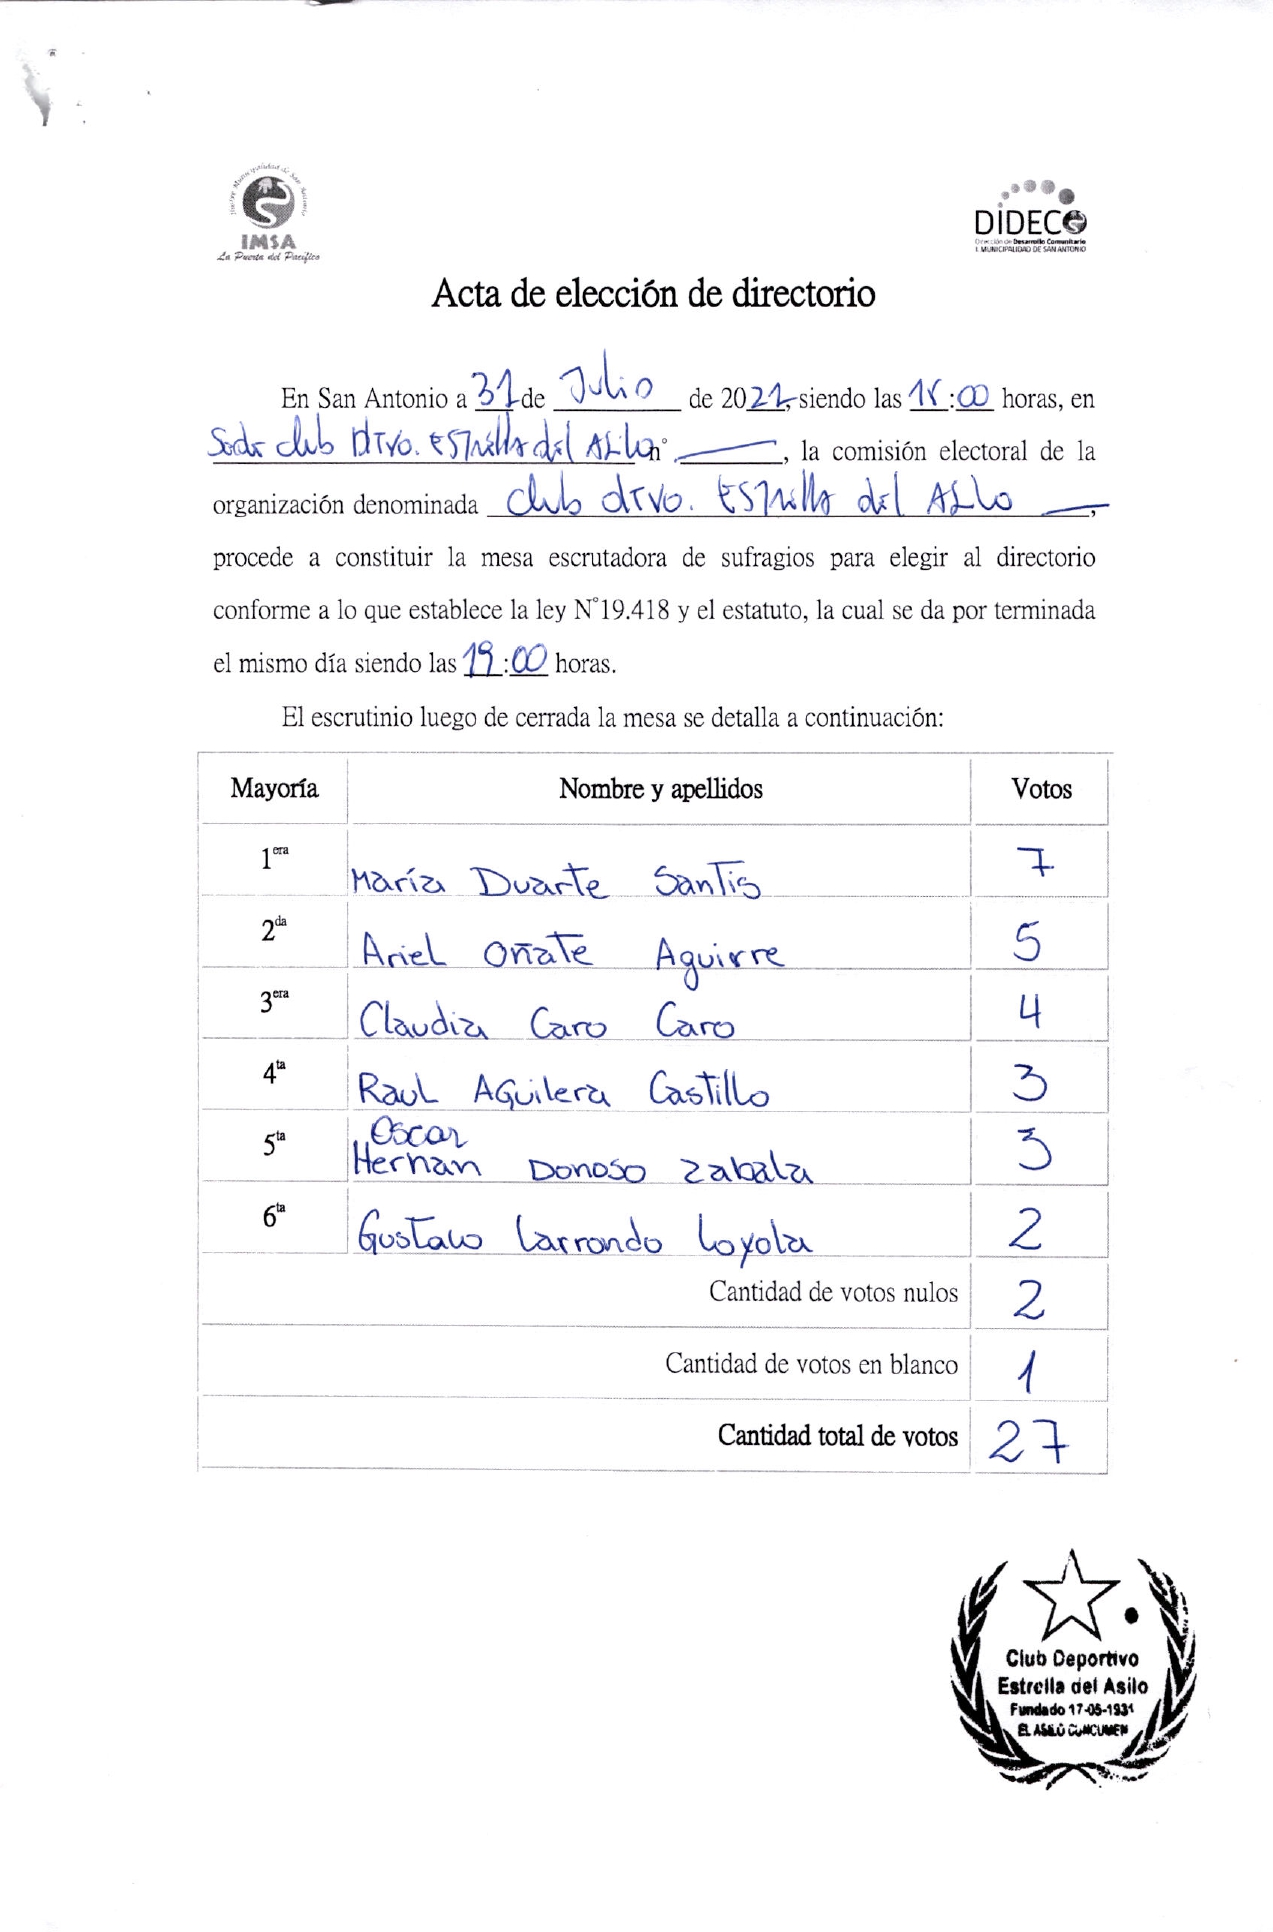 Ilustre Municipalidad de San Antonio
IMSA
La Puerta del Pacífico
DIDECO
Dirección de Desarrollo Comunitario
I. MUNICIPALIDAD DE SAN ANTONIO
Acta de elección de directorio
En San Antonio a 31 de Julio de 2021, siendo las :00 horas, en
Sede club Dtvo. Estrella del Asilo n° , la comisión electoral de la
organización denominada club dtvo. Estrella del Asilo ,
procede a constituir la mesa escrutadora de sufragios para elegir al directorio
conforme a lo que establece la ley N°19.418 y el estatuto, la cual se da por terminada
el mismo día siendo las 19:00 horas.
El escrutinio luego de cerrada la mesa se detalla a continuación:
Mayoría Nombre y apellidos Votos
1era María Duarte Santis 7
2da Ariel Oñate Aguirre 5
3era Claudia Caro Caro 4
4ta Raul Aguilera Castillo 3
5ta Oscar
Hernan Donoso Zabala 3
6ta Gustavo Larrondo Loyola 2
Cantidad de votos nulos 2
Cantidad de votos en blanco 1
Cantidad total de votos 27
Club Deportivo
Estrella del Asilo
Fundado 17-05-1931
EL ASILO CUNCUMEN